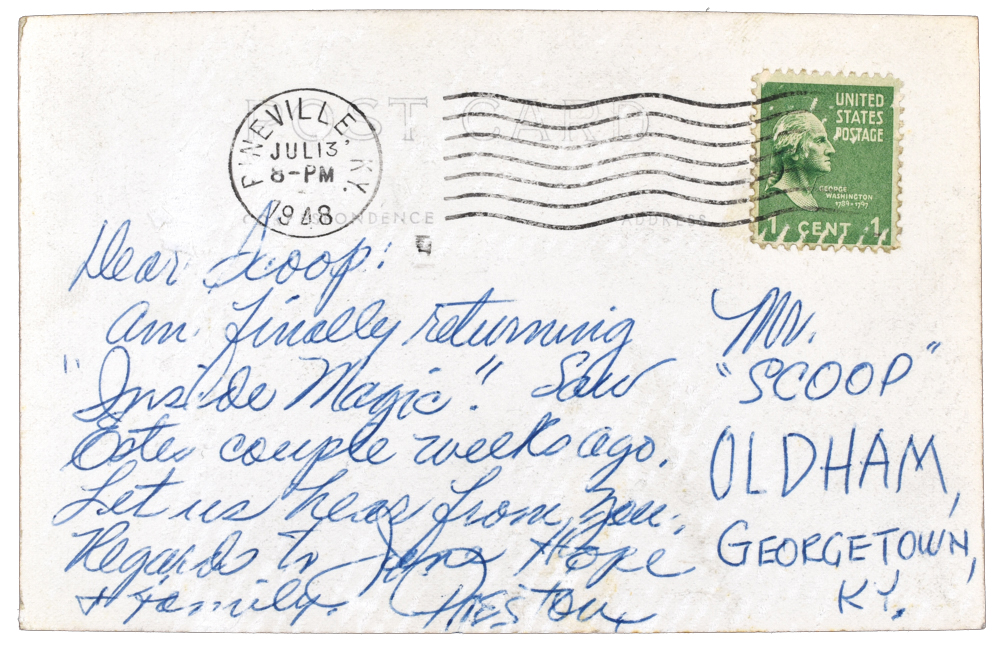 POST CARD
PINEVILLE, KY.
JUL 13
8-PM
1948
CORRESPONDENCE
ADDRESS
UNITED
STATES
POSTAGE
GEORGE
WASHINGTON
1789-1797
1 CENT 1
Dear Scoop:
Am finally returning
"Inside Magic". Saw
Estes couple weeks ago.
Let us hear from you.
Regards to Jane Hope
+ Family. Preston
Mr.
"SCOOP"
OLDHAM,
GEORGETOWN,
KY.